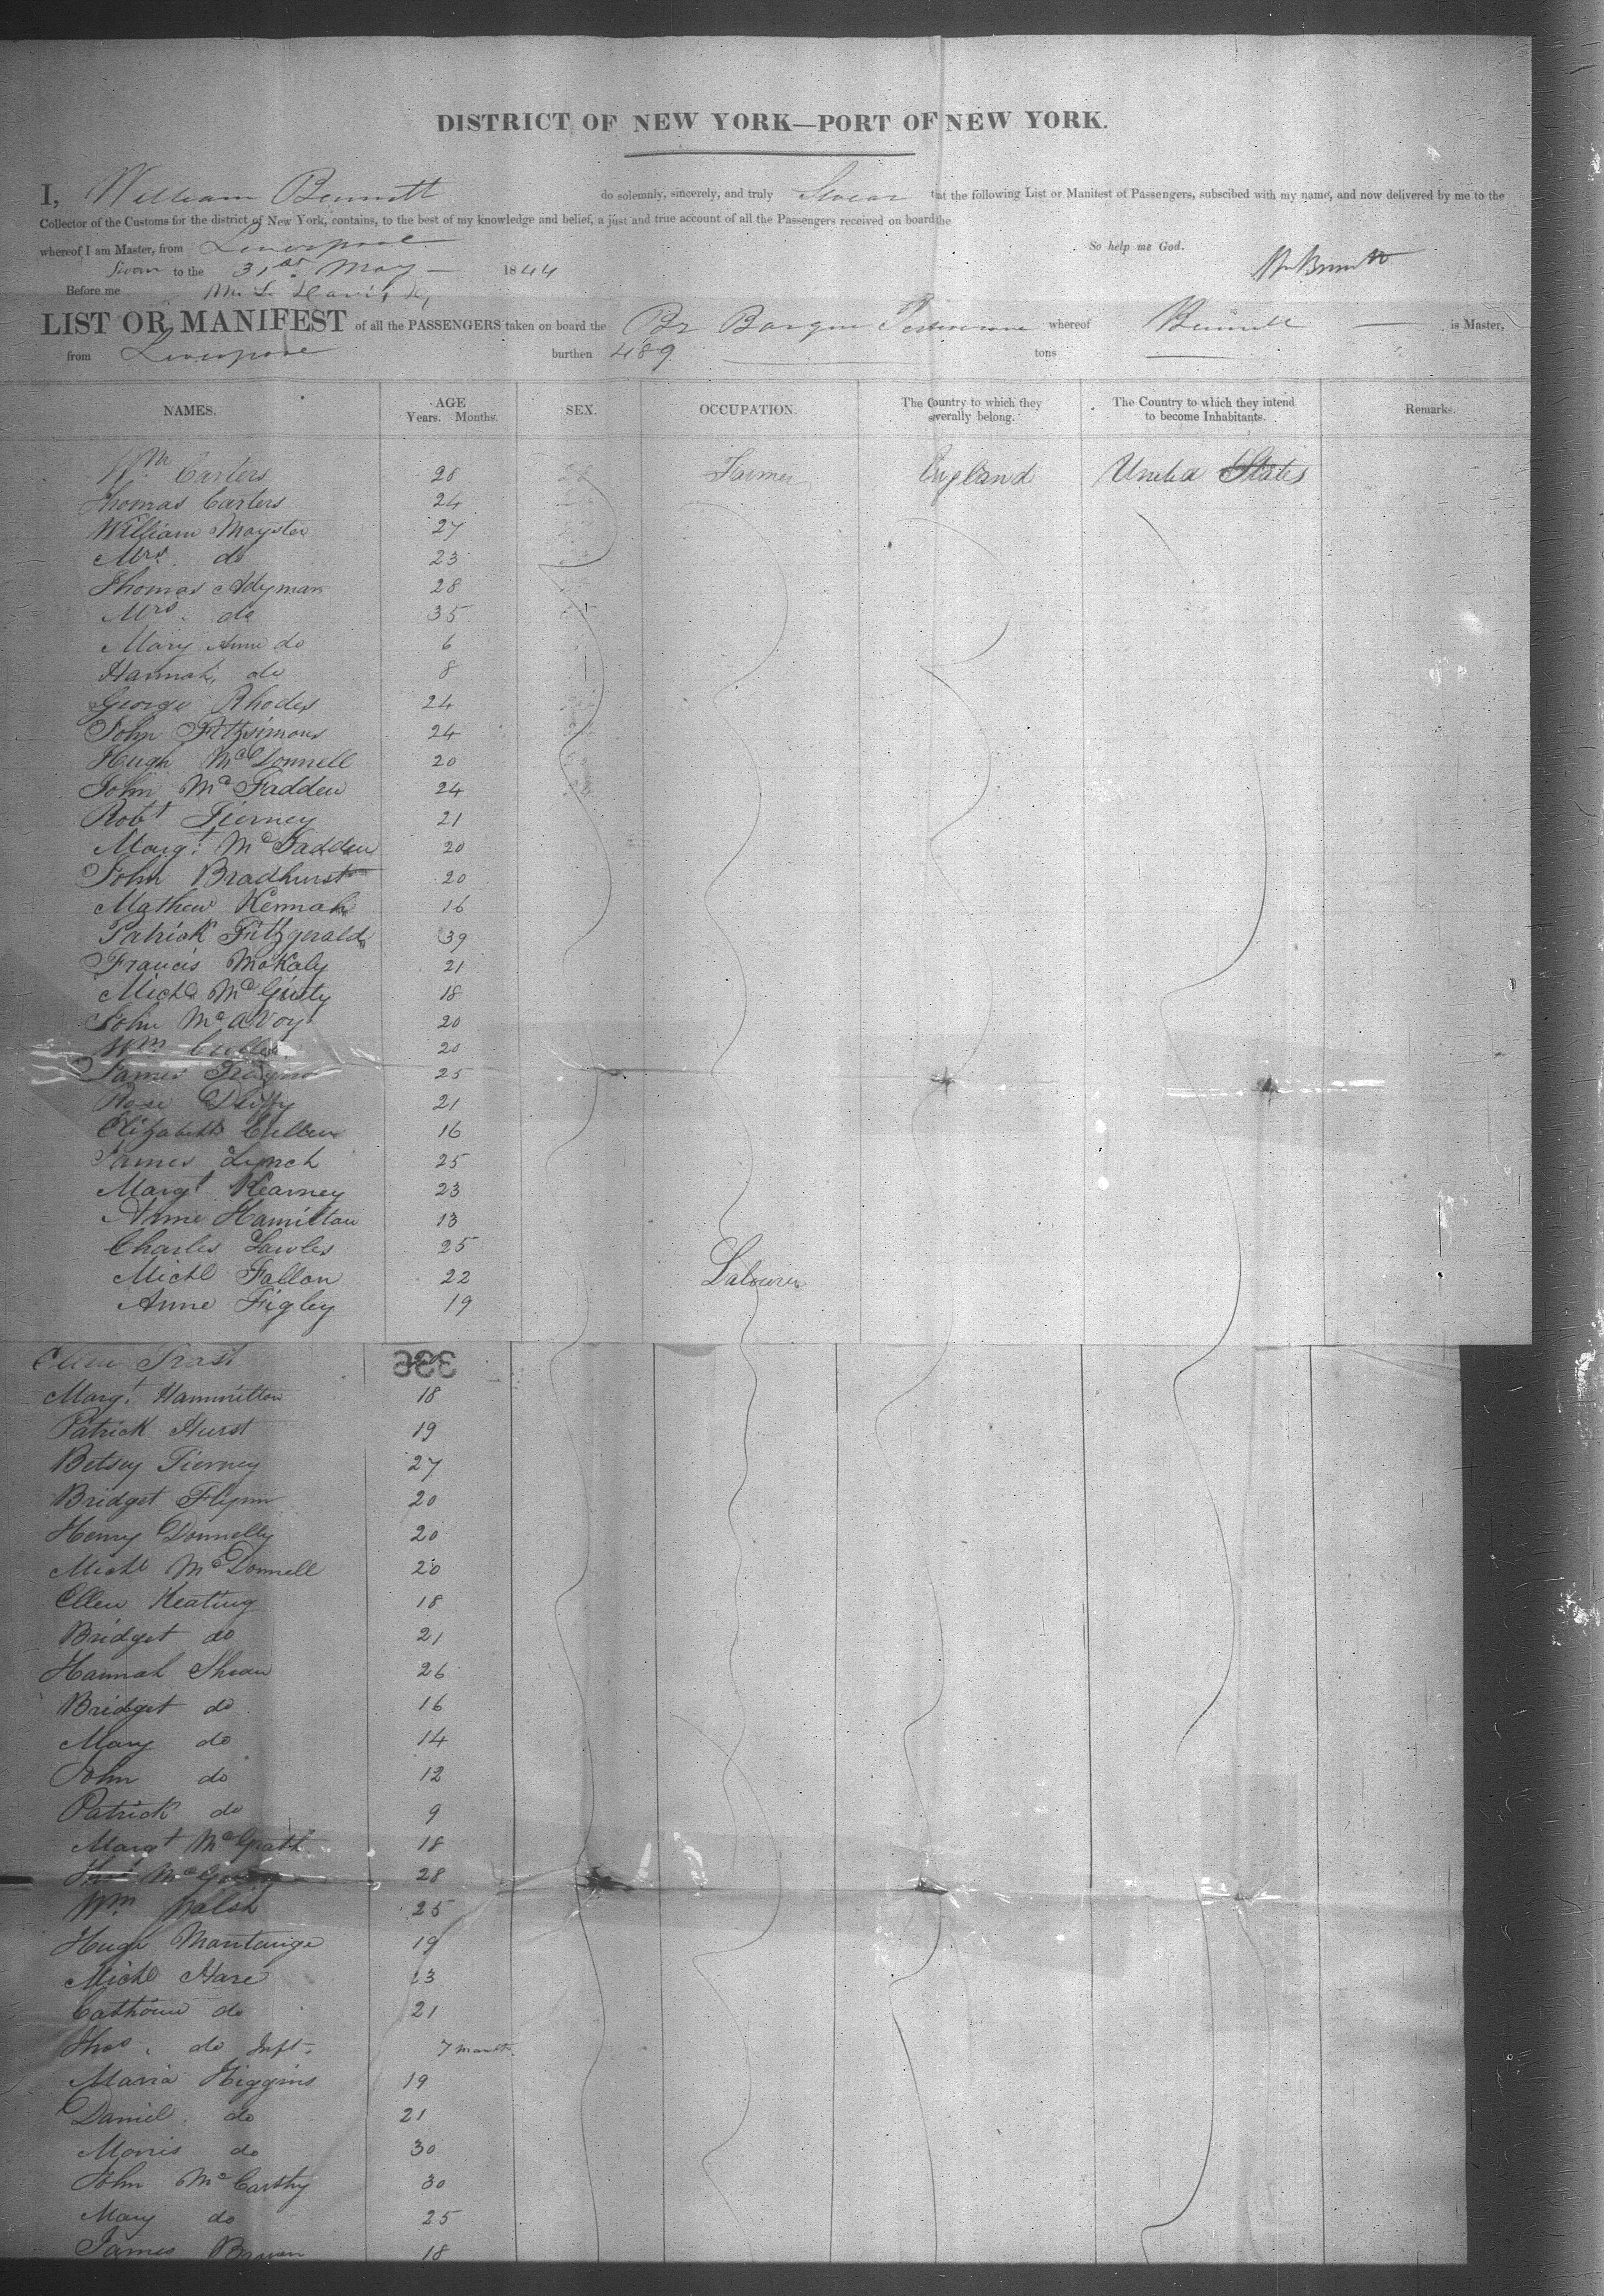 DISTRICT OF NEW YORK—PORT OF NEW YORK.
I, William Bennett do solemnly, sincerely, and truly Swear that the following List or Manifest of Passengers, subscibed with my name, and now delivered by me to the
Collector of the Customs for the district of New York, contains, to the best of my knowledge and belief, a just and true account of all the Passengers received on board the
whereof I am Master, from Liverpool So help me God.
Sworn to the 31st May 1844 Wm Bennett
Before me
LIST OR MANIFEST of all the PASSENGERS taken on board the Br Barque whereof Bennett is Master,
from Liverpool burthen 489 tons
NAMES. AGE Years. Months. SEX. OCCUPATION. The Country to which they severally belong. The Country to which they intend to become Inhabitants. Remarks.
Wm Carters 28 Farmer England United States
Thomas Carters 24
William Mayster 27
Mrs. do 23
Thomas Adyman 28
Mrs. do 35
Mary Ann do 6
Hannah do 8
George Rhodes 24
John Fitzsimons 24
Hugh McDonnell 20
John McFadden 24
Robt Tierney 21
Margt McFadden 20
John Bradhurst 20
Mathew Kennah 16
Patrick Fitzgerald 39
Francis McKaly 21
Michl McGinty 18
John McAvoy 20
Wm Cullen 20
James 25
Rose Duffy 21
Elizabeth Cullen 16
James Lynch 25
Margt Kearney 23
Anne Hamilton 13
Charles Lawles 25
Michl Fallon 22 Labourer
Anne Figley 19
Ellen Trast
336
Margt Hammilton 18
Patrick Hurst 19
Betsey Tierney 27
Bridget Flynn 20
Henry Donnelly 20
Michl McDonnell 20
Ellen Keating 18
Bridget do 21
Hannah Shean 26
Bridget do 16
Mary do 14
John do 12
Patrick do 9
Margt McGratt 18
28
Wm Walsh 25
Hugh Mantauge 19
Michl Hare 23
Catherine do 21
Thos. do Inft. 7 month
Maria Higgins 19
Daniel do 21
Morris do 30
John McCarthy 30
Mary do 25
James 18